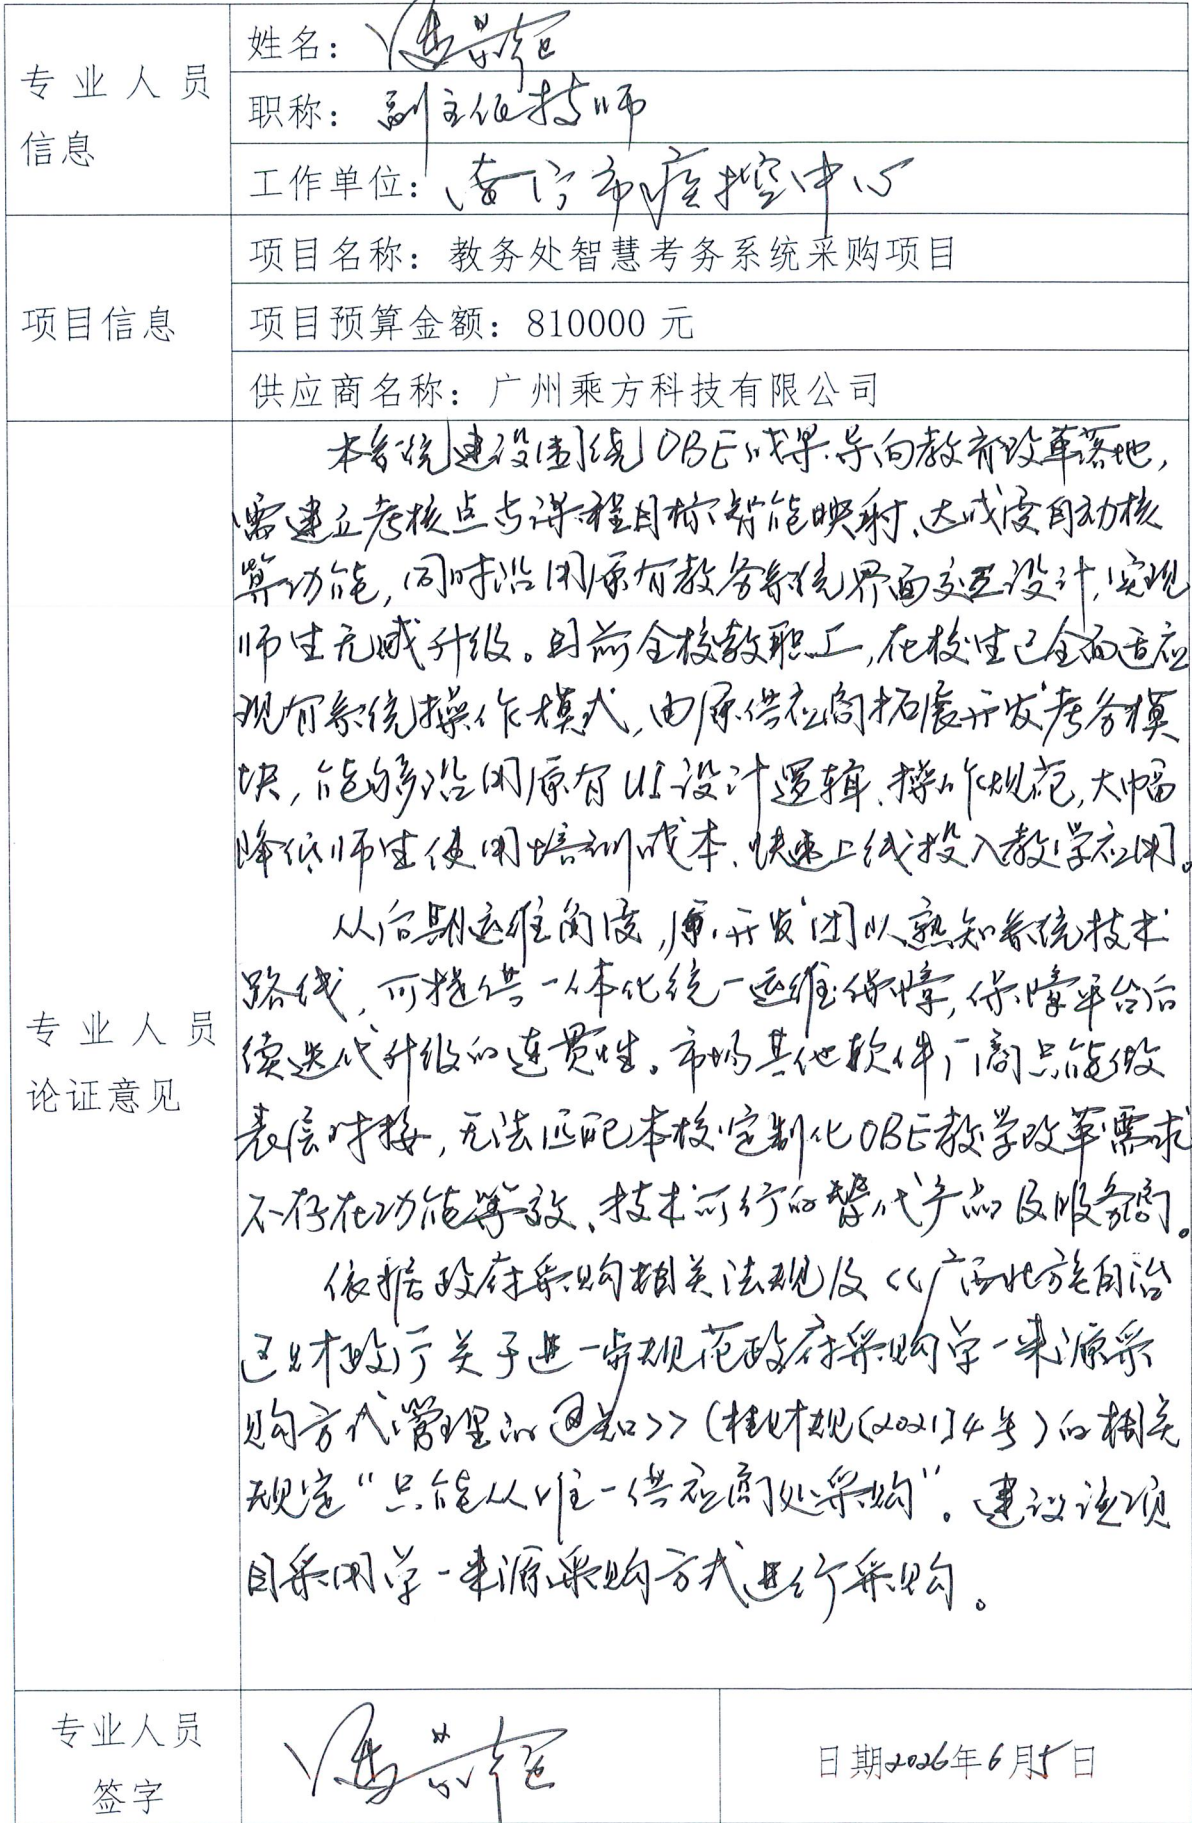 专业人员
信息
姓名：
职称：副主任技师
工作单位：南宁市疾控中心
项目信息
项目名称：教务处智慧考务系统采购项目
项目预算金额：810000 元
供应商名称：广州乘方科技有限公司
专业人员
论证意见
本系统建设围绕OBE成果导向教育改革落地，
需建立考核点与课程目标智能映射、达成度自动核
算功能，同时沿用原有教务系统界面交互设计，实现
师生无感升级。目前全校教职工，在校生已全面适应
现有系统操作模式，由原供应商拓展开发考务模
块，能够沿用原有UI设计逻辑、操作规范，大幅
降低师生使用培训成本、快速上线投入教学应用。
从后期运维角度，原开发团队熟知系统技术
路线，可提供一体化统一运维保障，保障平台后
续迭代升级的连贯性。市场其他软件厂商只能做
表层对接，无法匹配本校定制化OBE教学改革需求
不存在功能等效、技术可行的替代产品及服务商。
依据政府采购相关法规及《广西壮族自治
区财政厅关于进一步规范政府采购单一来源采
购方式管理的通知》（桂财规〔2021〕4号）的相关
规定“只能从唯一供应商处采购”。建议该项
目采用单一来源采购方式进行采购。
专业人员
签字
日期2026年6月5日